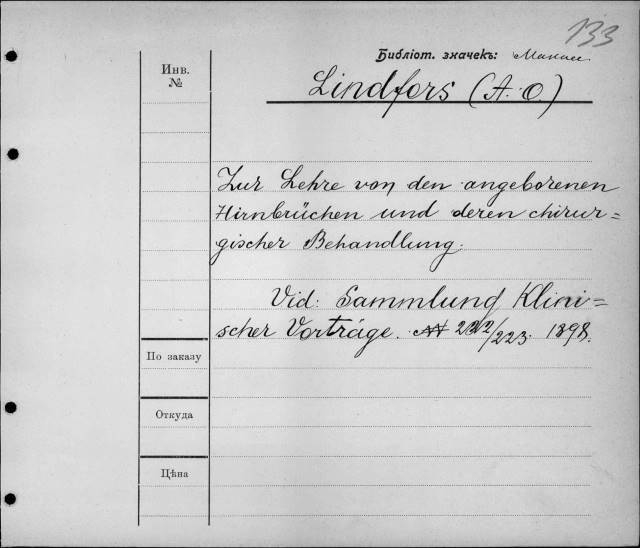 133
Библіот. значекъ:
Инв.
№
Lindfors (A. O.)
Zur Lehre von den angeborenen
Hirnbrüchen und deren chirur=
gischer Behandlung.
Vid: Sammlung Klini=
scher Vorträge. № 222/223. 1898.
По заказу
Откуда
Цѣна